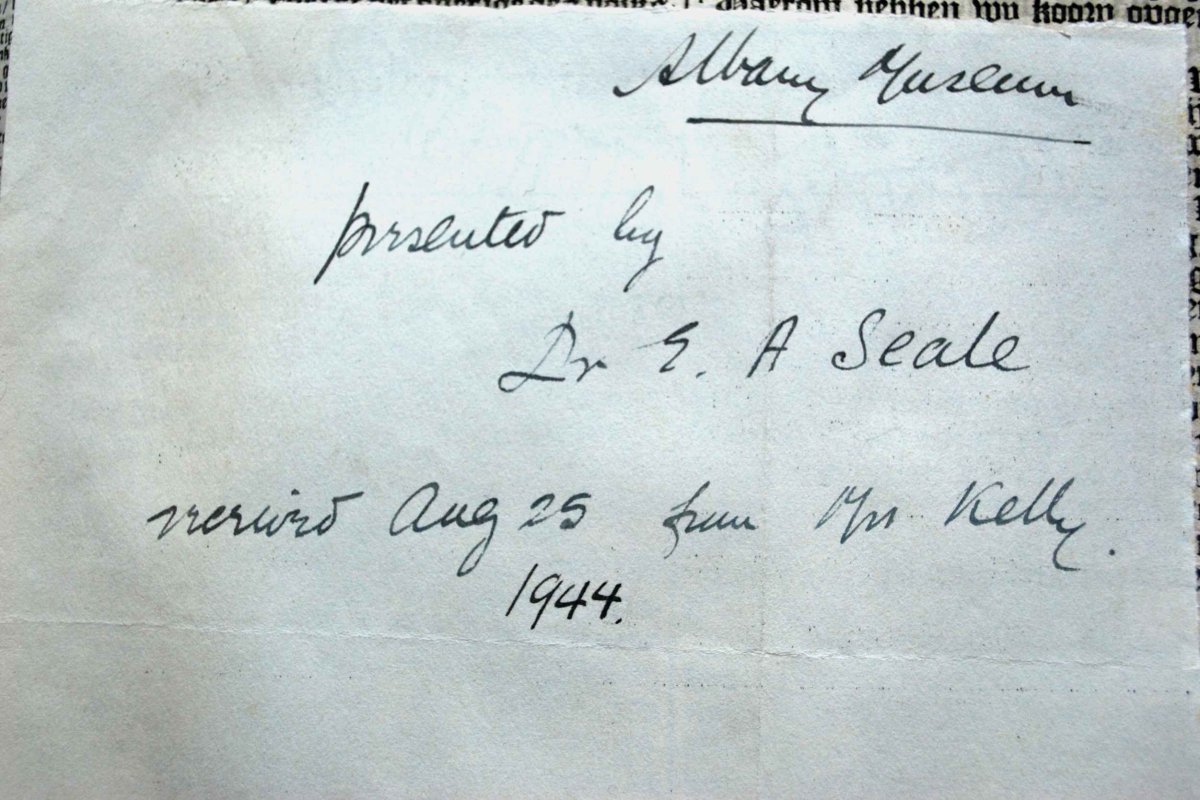 Daerom hebben wy
Albany Museum
presented by
Dr E. A Seale
received Aug 25 from Mrs Kelly.
1944.